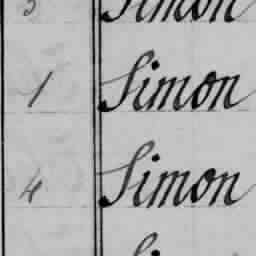 3 Simon
1 Simon
4 Simon